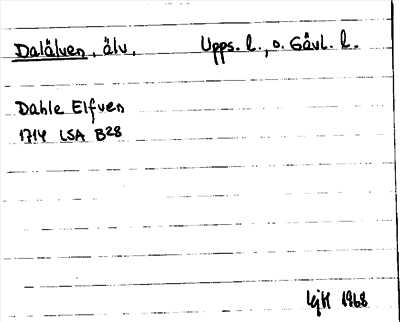 Dalälven, älv, Upps. l., o. Gävl. l.
Dahle Elfven
1714 LSA B28
1968